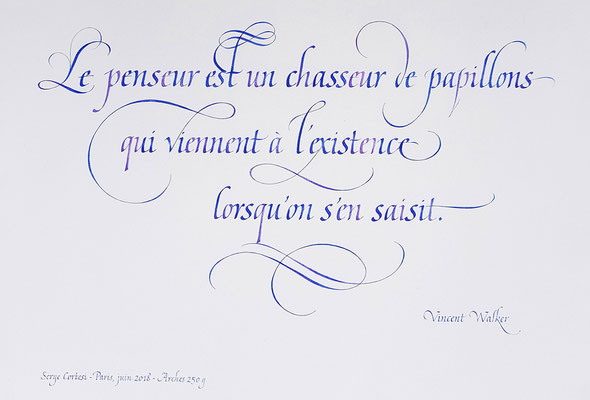 Le penseur est un chasseur de papillons
qui viennent à l'existence
lorsqu'on s'en saisit.
Vincent Walker
Serge Cortesi - Paris, juin 2018 - Arches 250 g